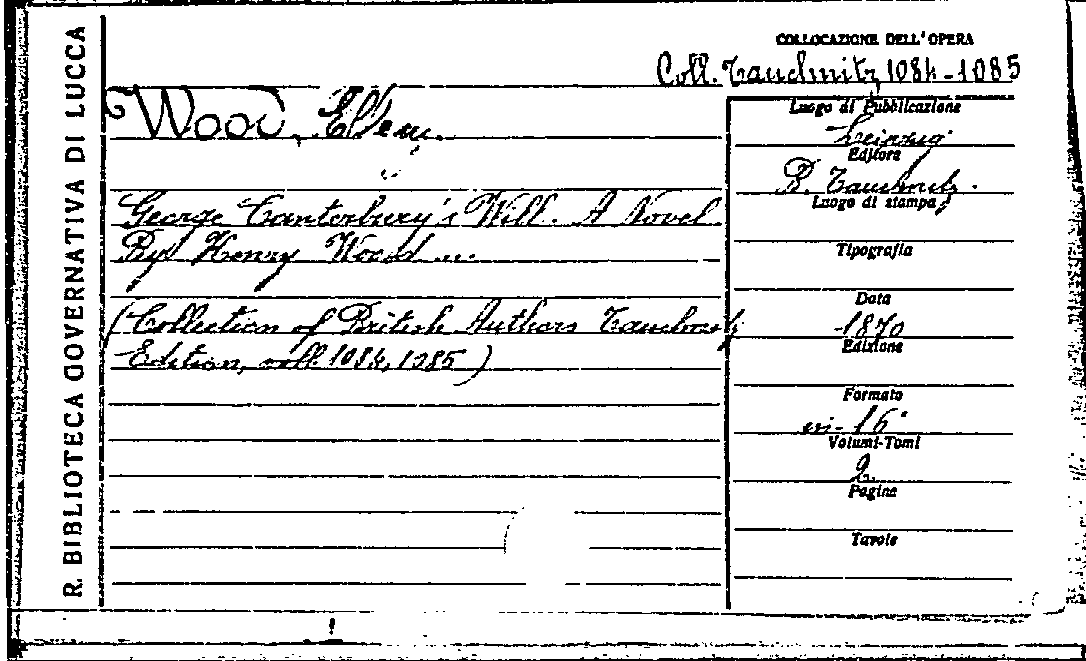 R. BIBLIOTECA GOVERNATIVA DI LUCCA
COLLOCAZIONE DELL'OPERA
Coll. Tauchnitz 1084-1085
Wood, Ellen.
George Canterbury's Will. A Novel
By Henry Wood ...
(Collection of British Authors Tauchnitz
Edition, voll. 1084, 1085)
Luogo di Pubblicazione
Leipzig
Editore
B. Tauchnitz.
Luogo di stampa
Tipografia
Data
1870
Edizione
Formato
in-16°
Volumi-Tomi
2
Pagine
Tavole